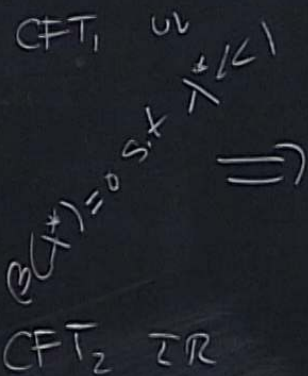 CFT₁ UV
β(λ*)=0 s.t λ*<<1
⇒
CFT₂ IR